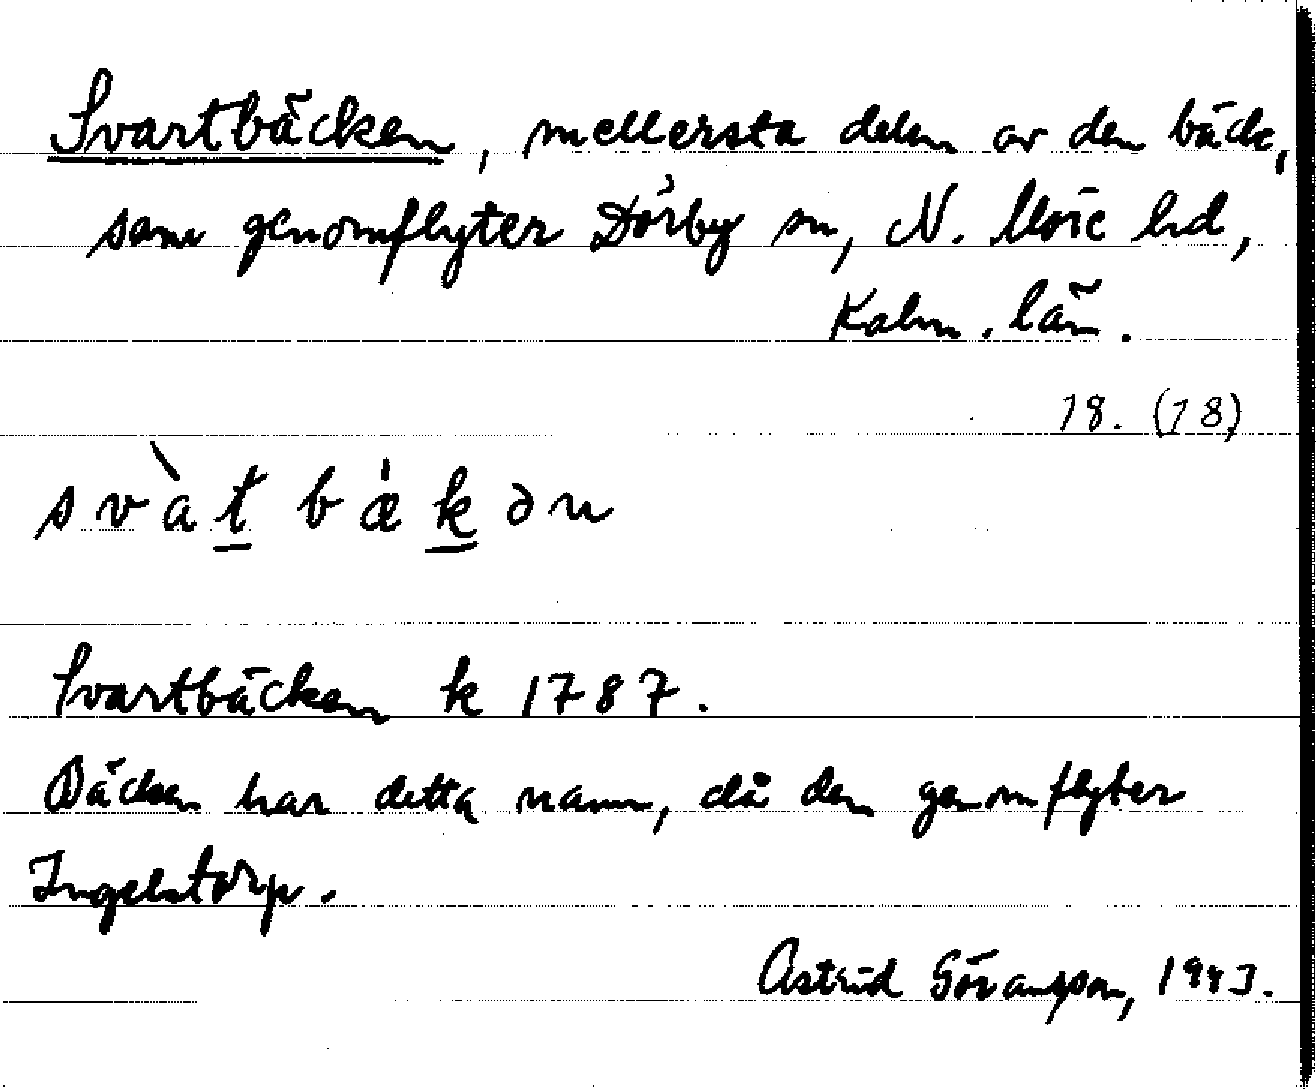 Svartbäcken, mellersta delen av den bäck,
som genomflyter Dörby sn, N. Möre hd,
Kalm. län.
18. (18)
svàt bækən
Svartbäcken k 1787.
Bäcken har detta namn, då den genomflyter
Ingelstorp.
Astrid Göransson, 1943.